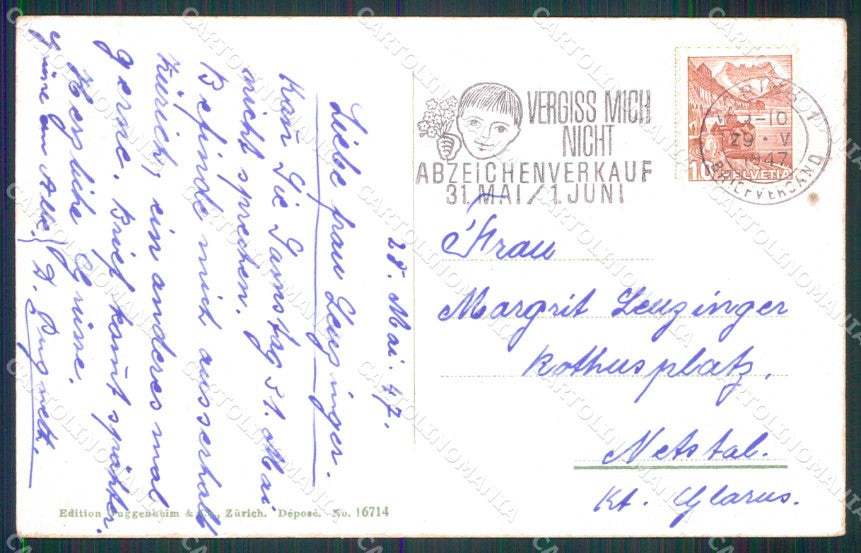 28. Mai. 47.
Liebe frau Leuzinger.
Kan Sie Samstag 31. Mai
nicht sprechen.
Befinde mich ausserhalb
Zürich, ein anderes mal
gerne. Brief kom̄t später.
Herzliche Grüsse.
Grüse an Alle.
VERGISS MICH
NICHT
ABZEICHENVERKAUF
31. MAI / 1. JUNI
9-10
29. V
1947
BRIEFVERSAND
10 HELVETIA
Frau
Margrit Leuzinger
Rothusplatz.
Netstal.
Kt. Glarus.
Edition Guggenheim & Co., Zürich. Déposé. No. 16714
CARTOLINOMANIA